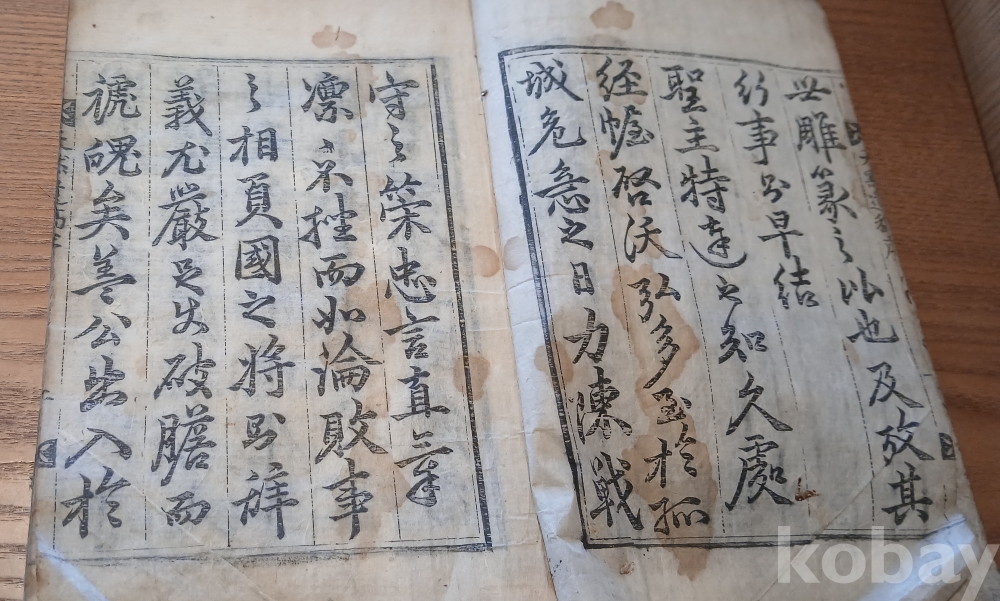 世雕篆之比也及攷其
行事則早結
聖主特達之知久處
經幄啓沃弘多至於孤
城危急之日力陳戰
守之策忠言直氣
凛凛不挫而如論敗事
之相負國之將則辞
義尤嚴足以破膽而
褫魄矣盖公出入於
kobay